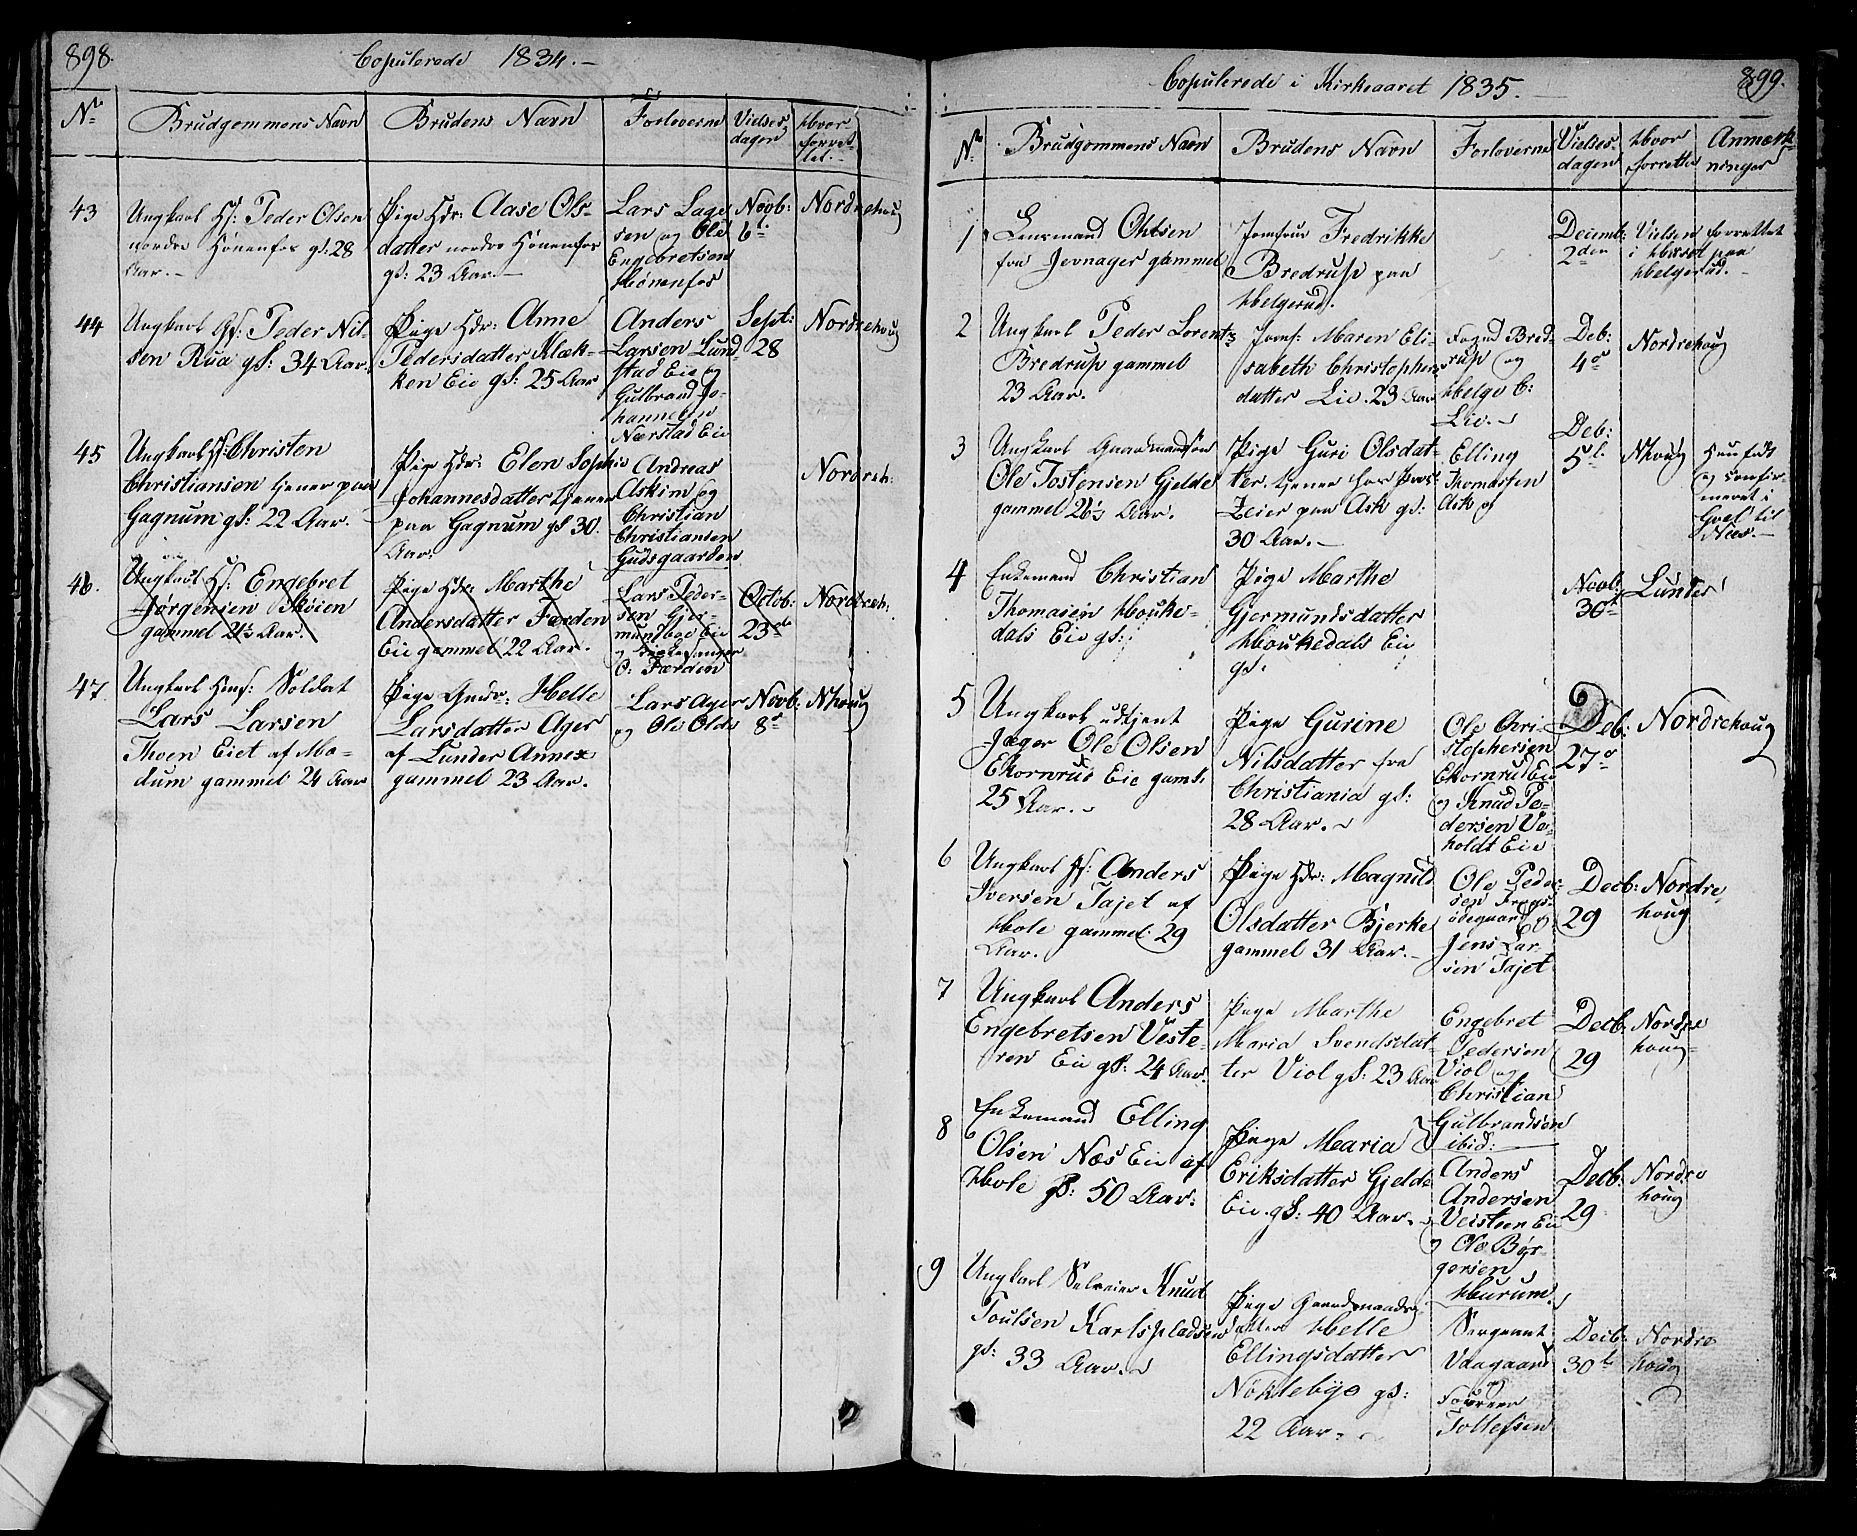 898.
Copulerede 1834.
No
Brudgommens Navn
Brudens Navn
Forloverne
Vielses
dagen
Hvor
forret
tet.
43
Ungkarl Hf: Peder Olsen
nordre Hønenfos gl: 28
Aar.
Pige Hdr: Aase Ols-
datter nordre Hønenfos
gl: 23 Aar.
Lars Lage
sen og Ole
Engebretsen
Hønenfos
Novb:
6t
Nordrehoug
44
Ungkarl Gf: Peder Nil-
sen Rua gl: 34 Aar.
Pige Hdr: Anne
Pedersdatter Klæk-
ken Eie gl: 25 Aar
Anders
Larsen Lund
stad Eie og
Gulbrand Jo-
hannesen
Nærstad Eie
Sept:
28
Nordrehoug
45
Ungkarl Hf: Christen
Christiansen tjener paa
Gagnum gl: 22 Aar.
Pige Hdr: Elen Sophie
Johannesdatter tjener
paa Gagnum gl 30
Aar.
Andreas
Askim og
Christian
Christiansen
Gudsgaarden
Nordreh:
46.
Ungkarl Hf: Engebret
Jørgensen Skøien
gammel 21½ Aar.
Pige Hdr: Marthe
Andersdatter Færden
Eie gammel 22 Aar.
Lars Peder-
sen Gjer-
mundboe Eie
og Kirkesanger
O: Færden
Octob:
23de
Nordreh:
47.
Ungkarl Hmf: Soldat
Lars Larsen
Thoen Eiet af Mo-
dum gammel 24 Aar
Pige Gmdr: Helle
Larsdatter Ager
af Lunder Annex
gammel 23 Aar.
Lars Ager
og Ole Olds
Novb:
8de
Nhoug
899.
Copulerede i Kirkeaaret 1835.
No
Brudgommens Navn
Brudens Navn
Forloverne
Vielses
dagen
Hvor
forrettet
Anmærk-
ninger
1
Lensmand Ohlsen
fra Jevnager gammel
Jomfrue Fredrikke
Bredrup paa
Helgerud.
Decemb:
2den
Vielsen forrettet
i Huset paa
Helgerud.
2
Ungkarl Peder Lorentz
Bredrup gammel
23 Aar.
Jomf: Maren Eli-
sabeth Christophers
datter Lie. 23 Aar
Foged Bred-
rup og
Helge C:
Lie.
Deb:
4de
Nordrehoug
3
Ungkarl Gaardmandssøn
Ole Tostensen Gjelde
gammel 26½ Aar.
Pige Guri Olsdat-
ter tjener hos Proc:
Zeier paa Ask gl:
30 Aar.
Elling
Thomassen
Ask og
Deb:
5t
Nhoug
Hun født
og confir-
meret i
Goel til
Næs.
4
Enkemand Christian
Thomasen Houke-
dals Eie gl:
Pige Marthe
Gjermundsdatter
Houkedals Eie
gl:
Novb
30t
Lunder
5
Ungkarl udtjent
Jæger Ole Olsen
Ekornrud Eie gaml.
25 Aar.
Pige Gurine
Nilsdatter fra
Christiania gl:
28 Aar.
Ole Chri-
stophersen
Ekornrud Eie
og Knud Pe-
dersen Ve-
holdt Eie
Deb:
27de
Nordrehoug
6
Ungkarl Jf: Anders
Iversen Tajet af
Hole gammel 29
Aar.
Pige Hdr: Magnild
Olsdatter Bjerke
gammel 31 Aar.
Ole Peder-
sen Frogs-
ødegaard og
Jens Lar-
sen Tajet
Decb:
29
Nordre
houg
7
Ungkarl Anders
Engebretsen Veste-
ren Eie gl: 24 Aar.
Pige Marthe
Maria Svendsdat-
ter Viol gl: 23 Aar
Engebret
Pedersen
Viol og
Christian
Gulbrandsen
ibid:
Decb:
29
Nordre
houg
8
Enkemand Elling
Olsen Næs Eie af
Hole gl: 50 Aar.
Pige Maria
Eriksdatter Gjelde
Eie. gl: 40 Aar.
Anders
Andersen
Veisteen Eie
og Ole Bør-
gersen
Hurum.
Decb:
29
Nordre
houg
9
Ungkarl Selveier Knud
Poulsen Karlspladsen
gl: 33 Aar.
Pige Gaardmands-
datter Helle
Ellingsdatter
Nøklebye gl:
22 Aar.
Sergeant
Vaagaard
og
Tollefsen
Decb:
30t
Nordre
houg